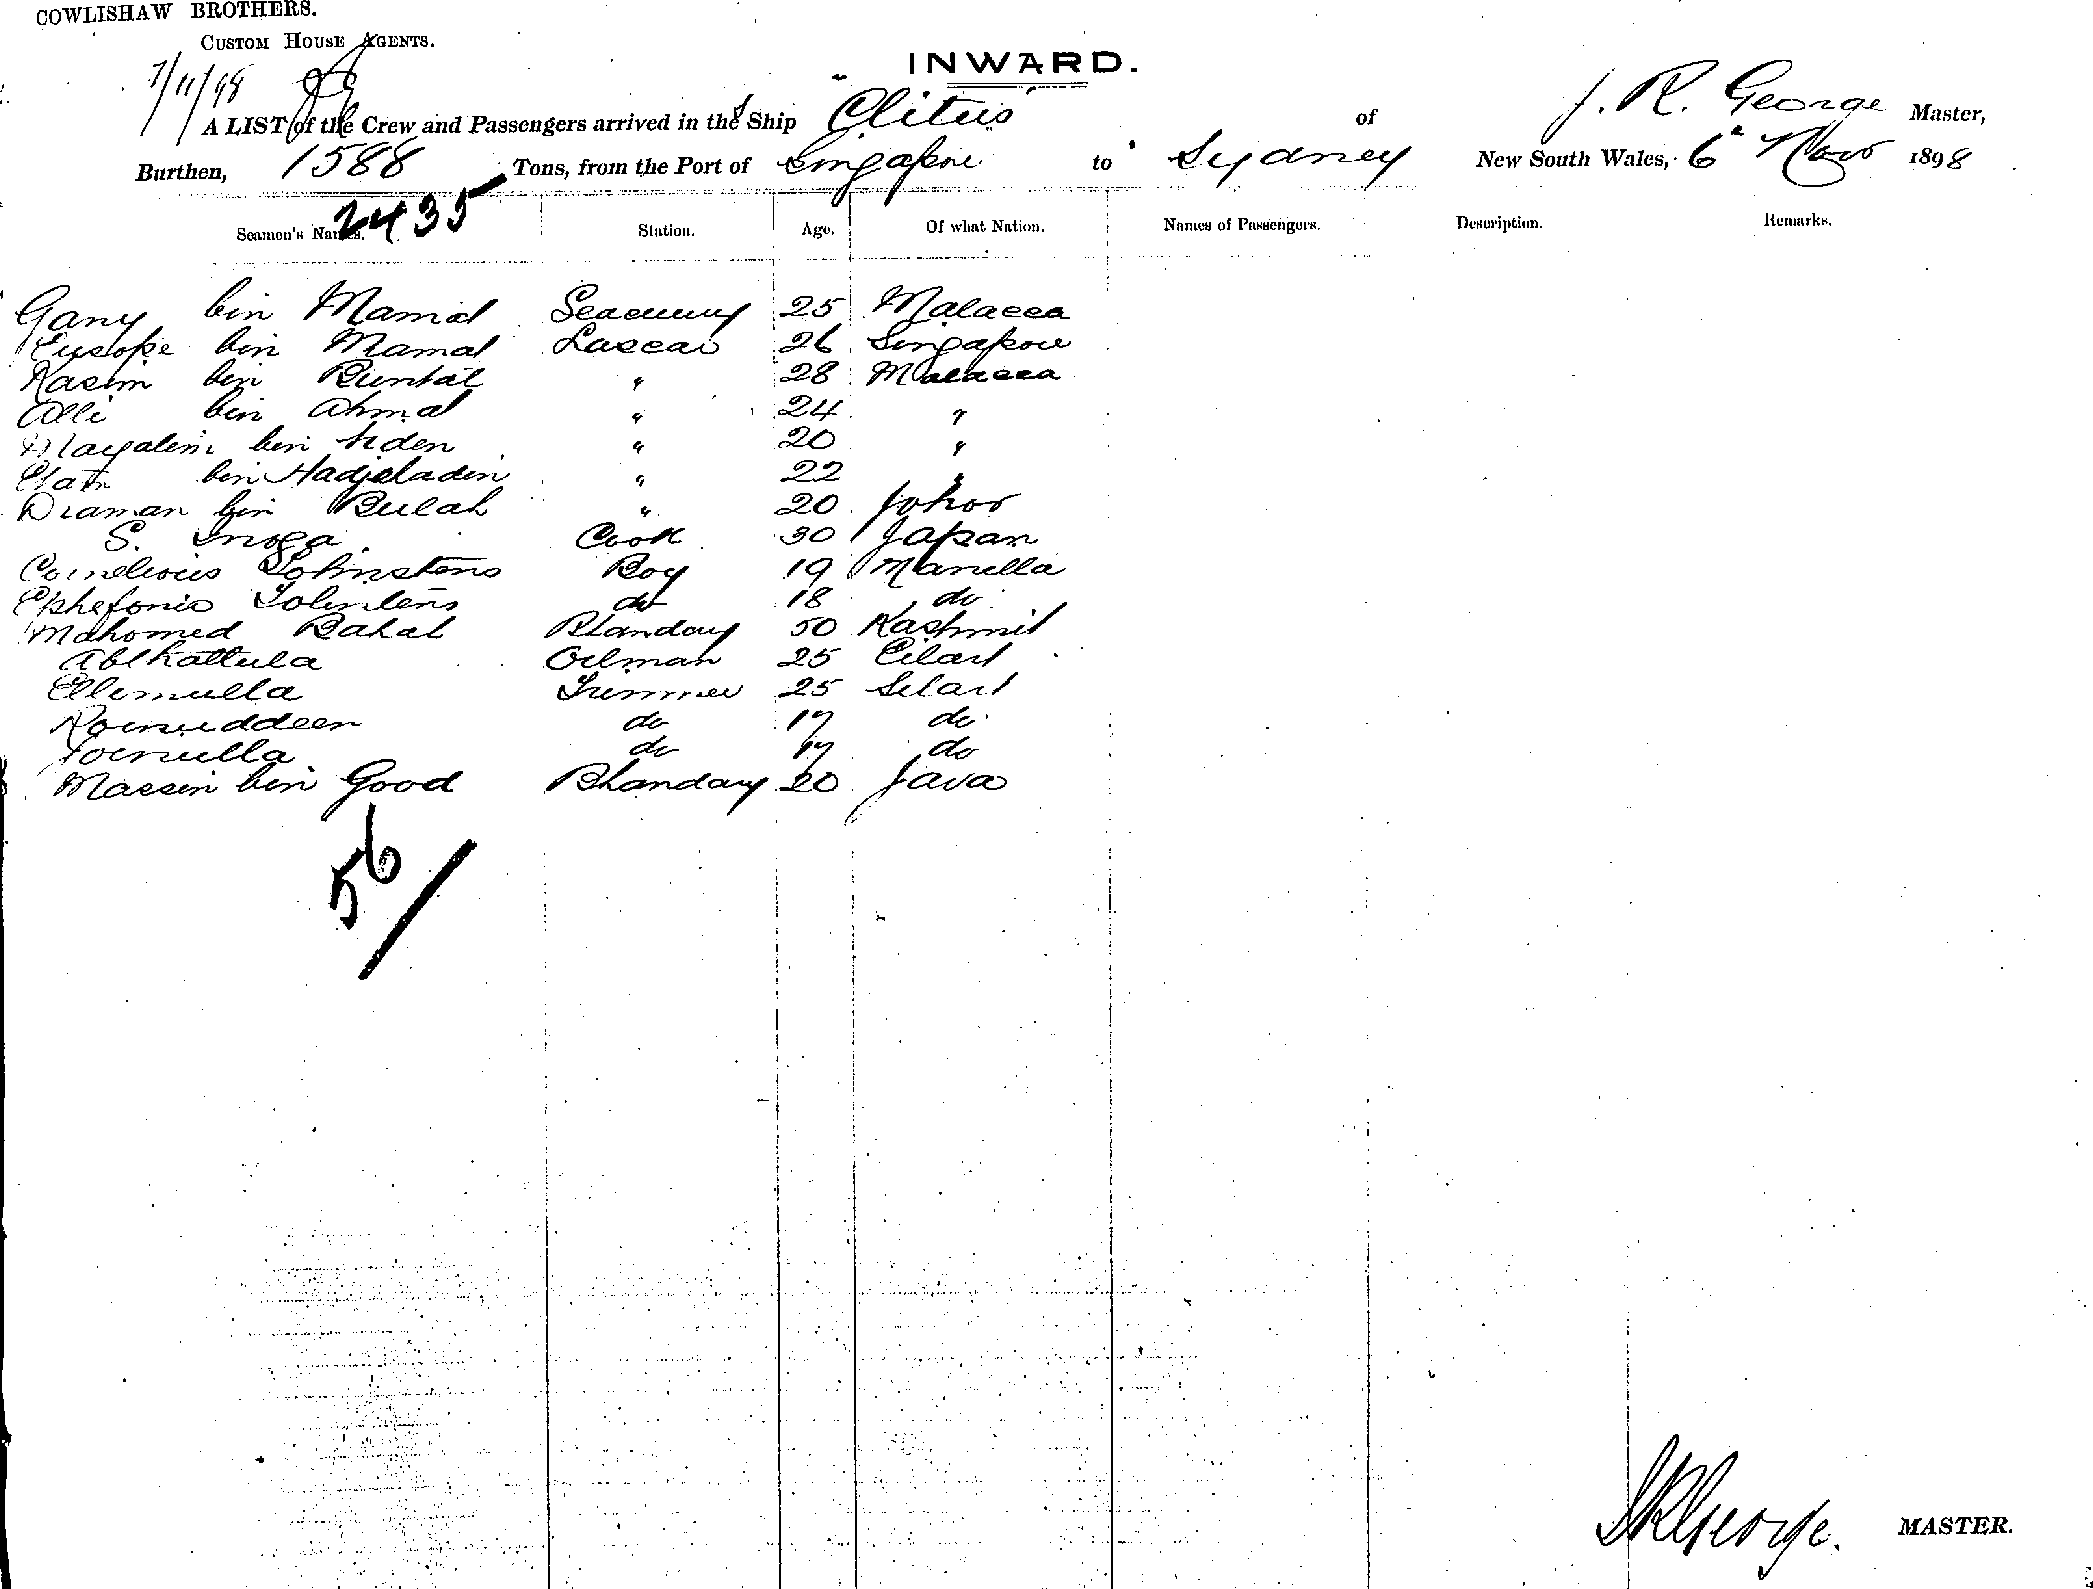 COWLISHAW BROTHERS.
CUSTOM HOUSE AGENTS.
7/11/98
INWARD.
A LIST of the Crew and Passengers arrived in the Ship "Clitus" of J. R. George Master,
Burthen, 1588 Tons, from the Port of Singapore to Sydney New South Wales, 6 Nov 1898
2435
Seamen's Names. Station. Age. Of what Nation. Names of Passengers. Description. Remarks.
Gany bin Mamd Seacunny 25 Malacca
Eusope bin Mamd Lascar 26 Singapore
Kasim bin Buntal " 28 Malacca
Alli bin Ahmad " 24 "
bin " 20 "
bin Hadjeladin " 22 "
Draman bin Bulah " 20 Johor
S. Cook 30 Japan
Cornelious Boy 19 Manilla
do 18 do
Mahomed Bahal Bhandary 50 Kashmil
Ablkattula Oilman 25
Ellemulla Trimmer 25
Komuddeen do 17 do
do 17 do
Massin bin Good Bhandary 20 Java
56
JRGeorge. MASTER.